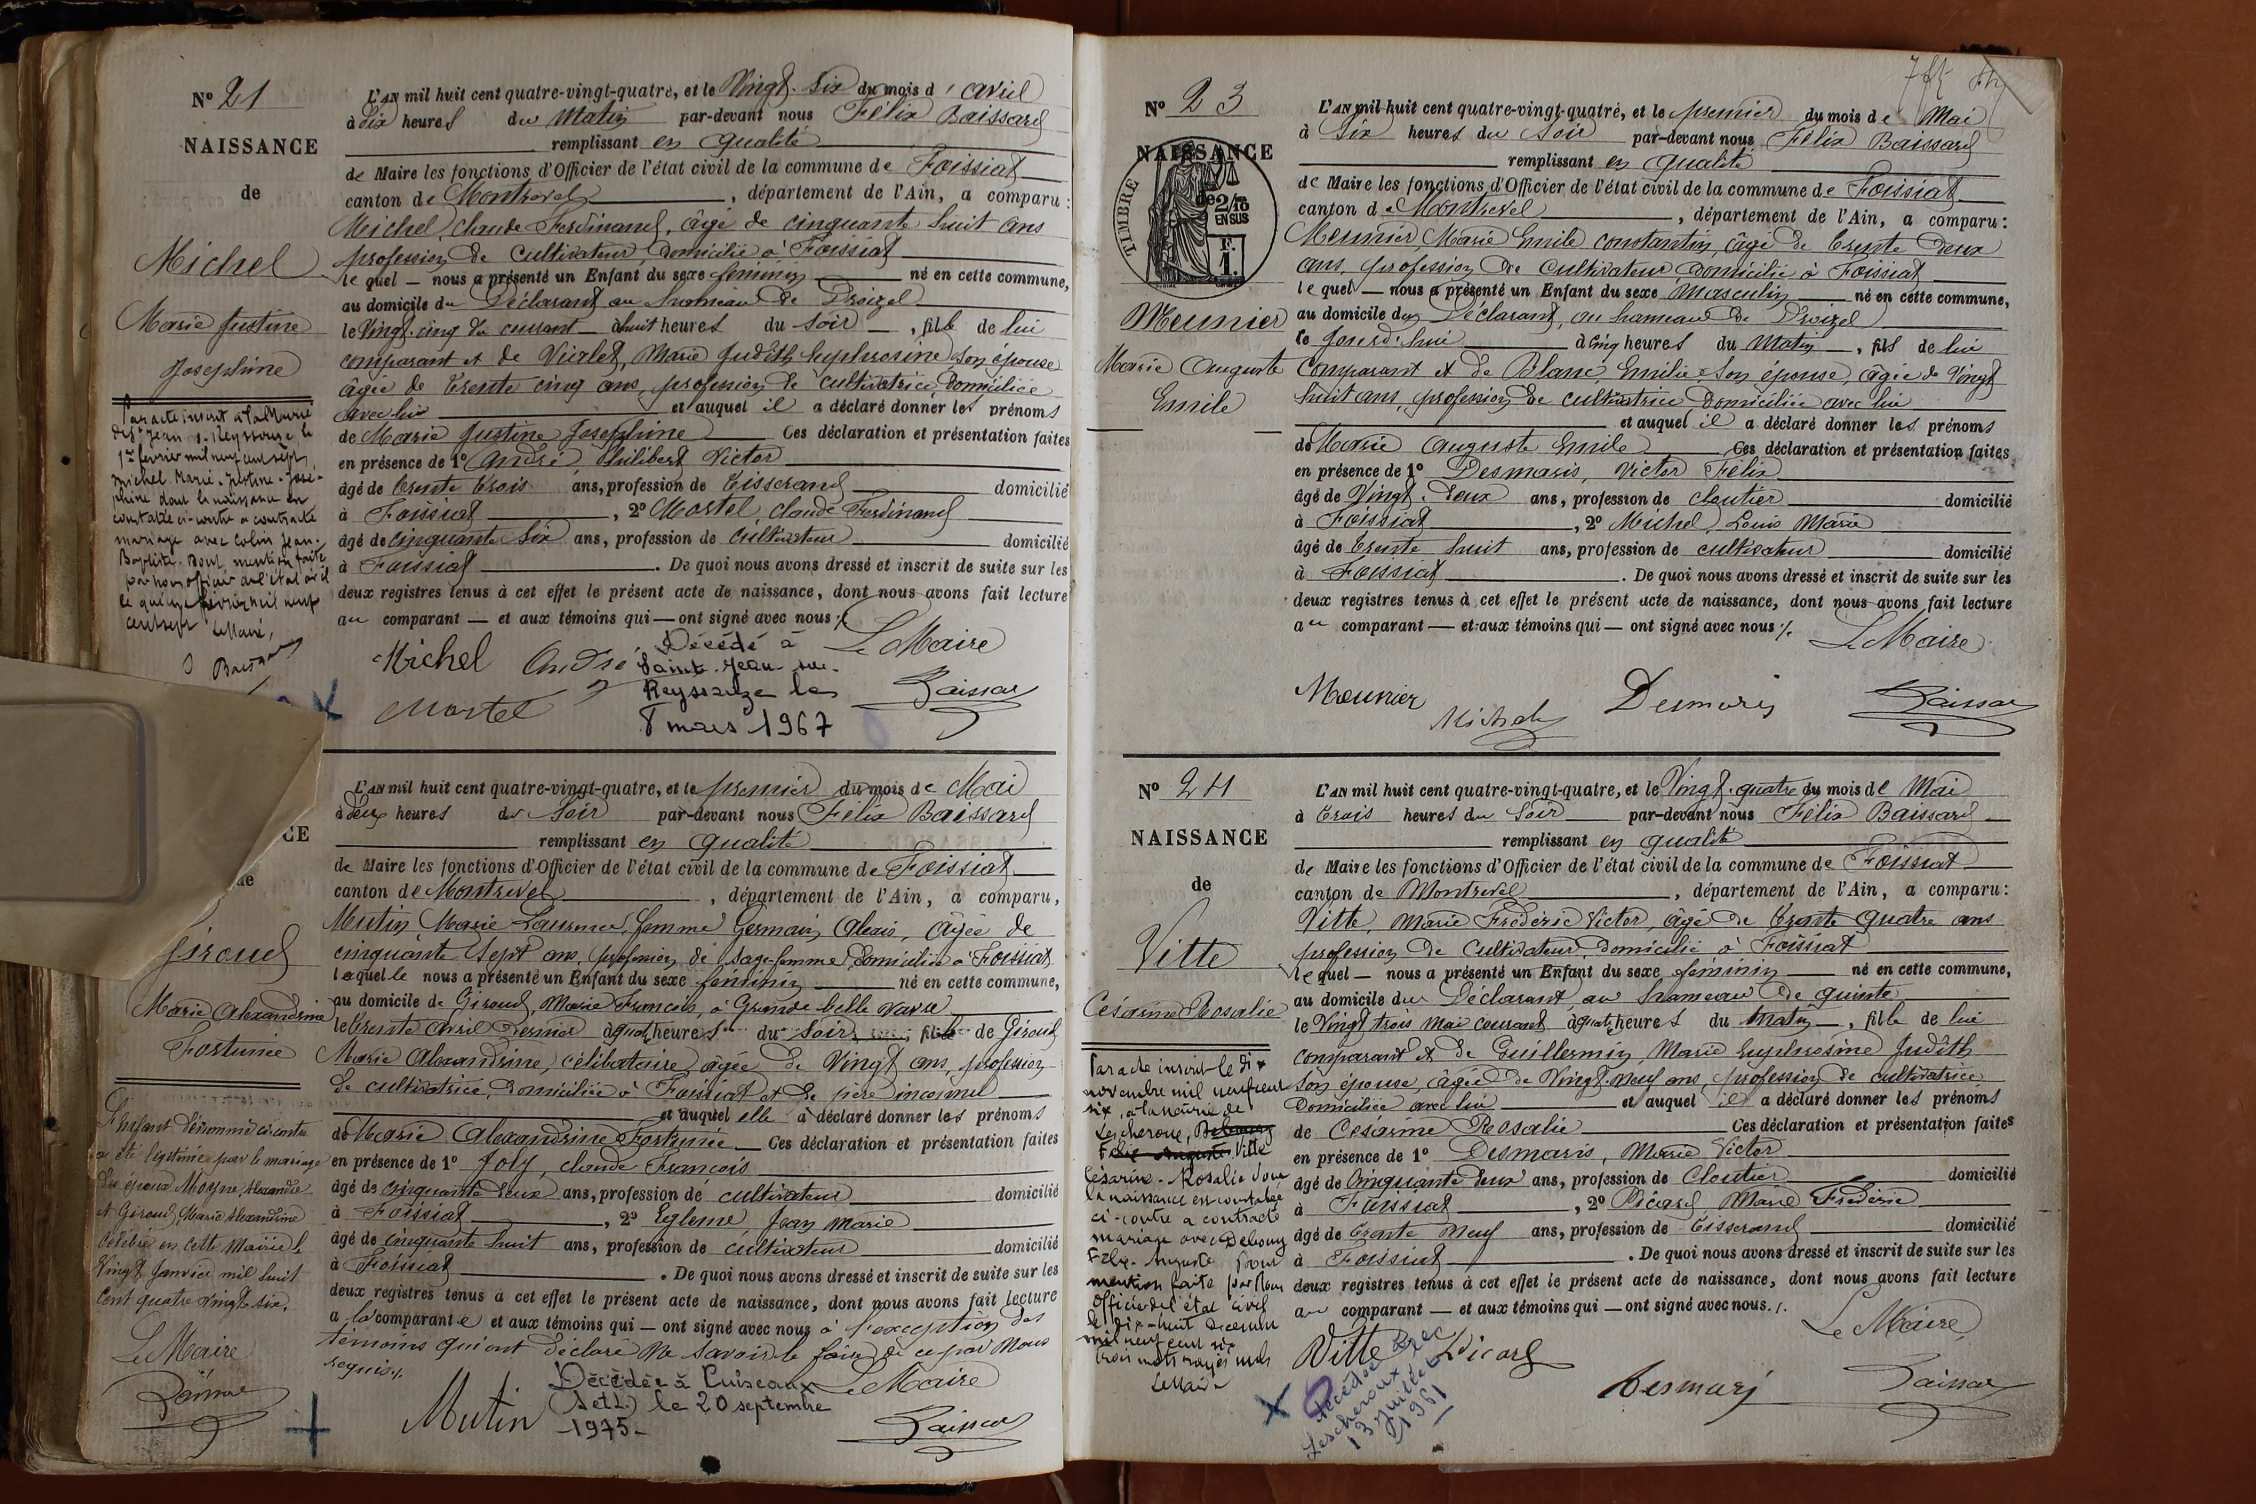 N° 21
NAISSANCE
de
Michel
Marie Justine
Josephine
Par acte inscrit à la Mairie
de St Jean s. Reyssouze le
1er février mil neuf cent sept,
Michel Marie-Justine-José-
phine dont la naissance est
constatée ci-contre a contracté
mariage avec Colin Jean-
Baptiste. Dont mention faite
par nous officier de l'état civil
le quinze février mil neuf
cent sept
Le Maire,
L'AN mil huit cent quatre-vingt-quatre, et le Vingt-Six du mois d'avril
à Six heures du Matin par-devant nous Félix Baissard
remplissant en qualité
de Maire les fonctions d'Officier de l'état civil de la commune de Foissiat
canton de Montrevel, département de l'Ain, a comparu:
Michel, Claude Ferdinand, âgé de cinquante huit ans
profession de cultivateur, domicilié à Foissiat
le quel — nous a présenté un Enfant du sexe féminin né en cette commune,
au domicile du Déclarant au hameau de Proizel
le Vingt-cinq du courant à huit heures du Soir, fille de lui
comparant et de Violet, Marie Judith Euphrosine, son épouse
âgée de trente cinq ans, profession de cultivatrice domiciliée
avec lui et auquel il a déclaré donner les prénoms
de Marie Justine Josephine Ces déclaration et présentation faites
en présence de 1° André, Philibert Victor
âgé de trente trois ans, profession de tisserand domicilié
à Foissiat, 2° Mortel Claude Ferdinand
âgé de cinquante Six ans, profession de cultivateur domicilié
à Foissiat. De quoi nous avons dressé et inscrit de suite sur les
deux registres tenus à cet effet le présent acte de naissance, dont nous avons fait lecture
au comparant — et aux témoins qui — ont signé avec nous ./.
Le Maire
Michel André
Mortel
Baissard
Décédé à
Saint-Jean-sur-
Reyssouze le
8 mars 1967
CE
de
Giroud
Marie Alexandrine
Fortunée
L'enfant dénommé ci-contre
a été légitimé par le mariage
des époux Moyne, Alexandre
et Giroud, Marie Alexandrine
célébré en cette Mairie le
Vingt Janvier mil huit
cent quatre vingt six.
Le Maire
L'AN mil huit cent quatre-vingt-quatre, et le premier du mois de Mai
à deux heures du Soir par-devant nous Félix Baissard
remplissant en qualité
de Maire les fonctions d'Officier de l'état civil de la commune de Foissiat
canton de Montrevel, département de l'Ain, a comparu,
Mutin Marie Laurence, femme Germain Alexis, âgée de
cinquante Sept ans, profession de Sage-femme domiciliée à Foissiat
laquelle nous a présenté un Enfant du sexe féminin né en cette commune,
au domicile de Giroud, Marie François, à Grande belle
le trente avril dernier à quatre heures du Soir, fille de Giroud
Marie Alexandrine, célibataire, âgée de Vingt ans, profession
de cultivatrice, domiciliée à Foissiat et de père inconnu
et auquel elle a déclaré donner les prénoms
de Marie Alexandrine Fortunée Ces déclaration et présentation faites
en présence de 1° Joly, Claude François
âgé de cinquante deux ans, profession de cultivateur domicilié
à Foissiat, 2° Egleme Jean Marie
âgé de cinquante huit ans, profession de cultivateur domicilié
à Foissiat. De quoi nous avons dressé et inscrit de suite sur les
deux registres tenus à cet effet le présent acte de naissance, dont nous avons fait lecture
a la comparante et aux témoins qui — ont signé avec nous à l'exception des
témoins qui ont déclaré ne savoir le faire de ce par nous
requis ./.
Le Maire
Mutin
Baissard
Décédée à Cuiseaux
(S et L) le 20 septembre
1975
N° 23
NAISSANCE
de
TIMBRE
2/10
EN SUS
F.
1.
Meunier
Marie Auguste
Emile
L'AN mil huit cent quatre-vingt-quatre, et le premier du mois de Mai
à Six heures du Soir par-devant nous Félix Baissard
remplissant en qualité
de Maire les fonctions d'Officier de l'état civil de la commune de Foissiat
canton de Montrevel, département de l'Ain, a comparu:
Meunier Marie Emile Constantin, âgé de trente deux
ans, profession de cultivateur domicilié à Foissiat
le quel — nous a présenté un Enfant du sexe Masculin né en cette commune,
au domicile du Déclarant, au hameau de Proizel
le Jourd'hui à cinq heures du Matin, fils de lui
comparant et de Blanc, Emilie, Son épouse, âgée de Vingt
huit ans, profession de cultivatrice domiciliée avec lui
et auquel il a déclaré donner les prénoms
de Marie Auguste Emile Ces déclaration et présentation faites
en présence de 1° Desmaris, Victor Félix
âgé de Vingt-deux ans, profession de cloutier domicilié
à Foissiat, 2° Michel, Louis Marie
âgé de trente huit ans, profession de cultivateur domicilié
à Foissiat. De quoi nous avons dressé et inscrit de suite sur les
deux registres tenus à cet effet le présent acte de naissance, dont nous avons fait lecture
au comparant — et aux témoins qui — ont signé avec nous ./.
Le Maire
Meunier
Michel
Desmaris
Baissard
N° 24
NAISSANCE
de
Vitte
Césarine Rosalie
Par acte inscrit le dix
novembre mil neuf cent
six, à la mairie de
Lescheroux, Debourg
Félix Auguste Vitte
Césarine-Rosalie dont
la naissance est constatée
ci-contre a contracté
mariage avec Debourg
Félix-Auguste Dont
mention faite par Nous
Officier de l'état civil
le dix-huit décembre
mil neuf cent six
Trois mots rayés nuls
Le Maire
L'AN mil huit cent quatre-vingt-quatre, et le Vingt-quatre du mois de Mai
à trois heures du Soir par-devant nous Félix Baissard
remplissant en qualité
de Maire les fonctions d'Officier de l'état civil de la commune de Foissiat
canton de Montrevel, département de l'Ain, a comparu:
Vitte, Marie Frédéric Victor, âgé de trente quatre ans
profession de cultivateur, domicilié à Foissiat
le quel — nous a présenté un Enfant du sexe féminin né en cette commune,
au domicile du Déclarant au hameau de quinte
le Vingt trois mai courant à quatre heures du Matin, fille de lui
comparant et de Guillermin Marie Euphrosine Judith
Son épouse âgée de Vingt-neuf ans, profession de cultivatrice
domiciliée avec lui et auquel il a déclaré donner les prénoms
de Césarine Rosalie Ces déclaration et présentation faites
en présence de 1° Desmaris, Marie Victor
âgé de Cinquante deux ans, profession de Cloutier domicilié
à Foissiat, 2° Picard, Marie Frédéric
âgé de trente neuf ans, profession de tisserand domicilié
à Foissiat. De quoi nous avons dressé et inscrit de suite sur les
deux registres tenus à cet effet le présent acte de naissance, dont nous avons fait lecture
au comparant — et aux témoins qui — ont signé avec nous ./.
Le Maire
Vitte Picard
Desmaris
Baissard
Décédée à
Lescheroux le
13 juillet
1961